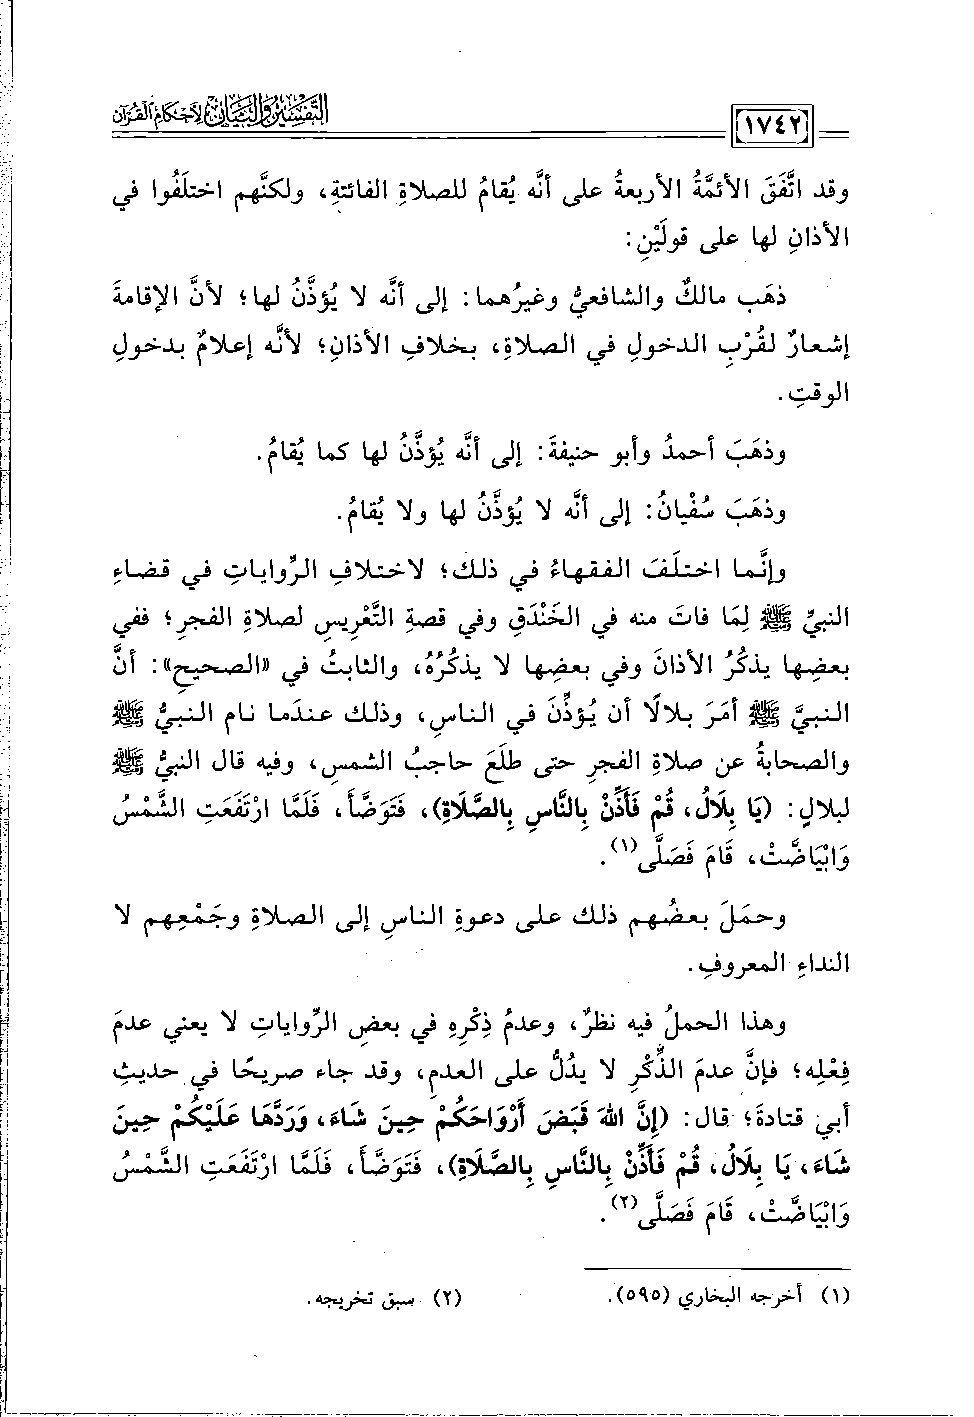 التفسير والبيان لأحكام القرآن
١٧٤٢
وقد اتَّفَقَ الأئمَّةُ الأربعةُ على أنَّه يُقامُ للصلاةِ الفائتةِ، ولكنَّهم اختلَفُوا في
الأذانِ لها على قولَيْنِ:
ذهَب مالكٌ والشافعيُّ وغيرُهما: إلى أنَّه لا يُؤذَّنُ لها؛ لأنَّ الإقامةَ
إشعارٌ لقُرْبِ الدخولِ في الصلاةِ، بخلافِ الأذانِ؛ لأنَّه إعلامٌ بدخولِ
الوقتِ.
وذهَبَ أحمدُ وأبو حنيفةَ: إلى أنَّه يُؤذَّنُ لها كما يُقامُ.
وذهَبَ سُفْيانُ: إلى أنَّه لا يُؤذَّنُ لها ولا يُقامُ.
وإنَّما اختلَفَ الفقهاءُ في ذلك؛ لاختلافِ الرِّواياتِ في قضاءِ
النبيِّ ﷺ لِمَا فاتَ منه في الخَنْدَقِ وفي قصةِ التَّعْرِيسِ لصلاةِ الفجرِ؛ ففي
بعضِها يذكُرُ الأذانَ وفي بعضِها لا يذكُرُهُ، والثابتُ في «الصحيحِ»: أنَّ
النبيَّ ﷺ أمَرَ بلالًا أن يُؤذِّنَ في الناسِ، وذلك عندَما نام النبيُّ ﷺ
والصحابةُ عن صلاةِ الفجرِ حتى طلَعَ حاجبُ الشمسِ، وفيه قال النبيُّ ﷺ
لبلالٍ: (يَا بِلَالُ، قُمْ فَأَذِّنْ بِالنَّاسِ بِالصَّلَاةِ)، فَتَوَضَّأَ، فَلَمَّا ارْتَفَعَتِ الشَّمْسُ
وَابْيَاضَّتْ، قَامَ فَصَلَّى(١).
وحمَلَ بعضُهم ذلك على دعوةِ الناسِ إلى الصلاةِ وجَمْعِهم لا
النداءِ المعروفِ.
وهذا الحملُ فيه نظرٌ، وعدمُ ذِكْرِهِ في بعضِ الرِّواياتِ لا يعني عدمَ
فِعْلِه؛ فإنَّ عدمَ الذِّكْرِ لا يدُلُّ على العدمِ، وقد جاء صريحًا في حديثِ
أبي قتادةَ؛ قال: (إِنَّ اللهَ قَبَضَ أَرْوَاحَكُمْ حِينَ شَاءَ، وَرَدَّهَا عَلَيْكُمْ حِينَ
شَاءَ، يَا بِلَالُ، قُمْ فَأَذِّنْ بِالنَّاسِ بِالصَّلَاةِ)، فَتَوَضَّأَ، فَلَمَّا ارْتَفَعَتِ الشَّمْسُ
وَابْيَاضَّتْ، قَامَ فَصَلَّى(٢).
(١) أخرجه البخاري (٥٩٥).
(٢) سبق تخريجه.